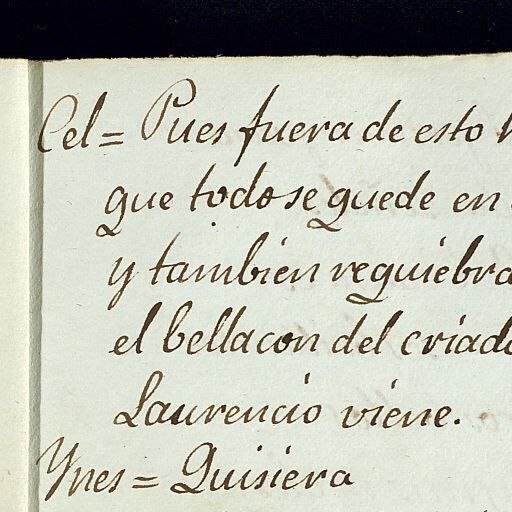 Cel= Pues fuera de esto
que todo se quede en
y tambien requiebra
el bellacon del criado
Laurencio viene.
Ynes = Quisiera